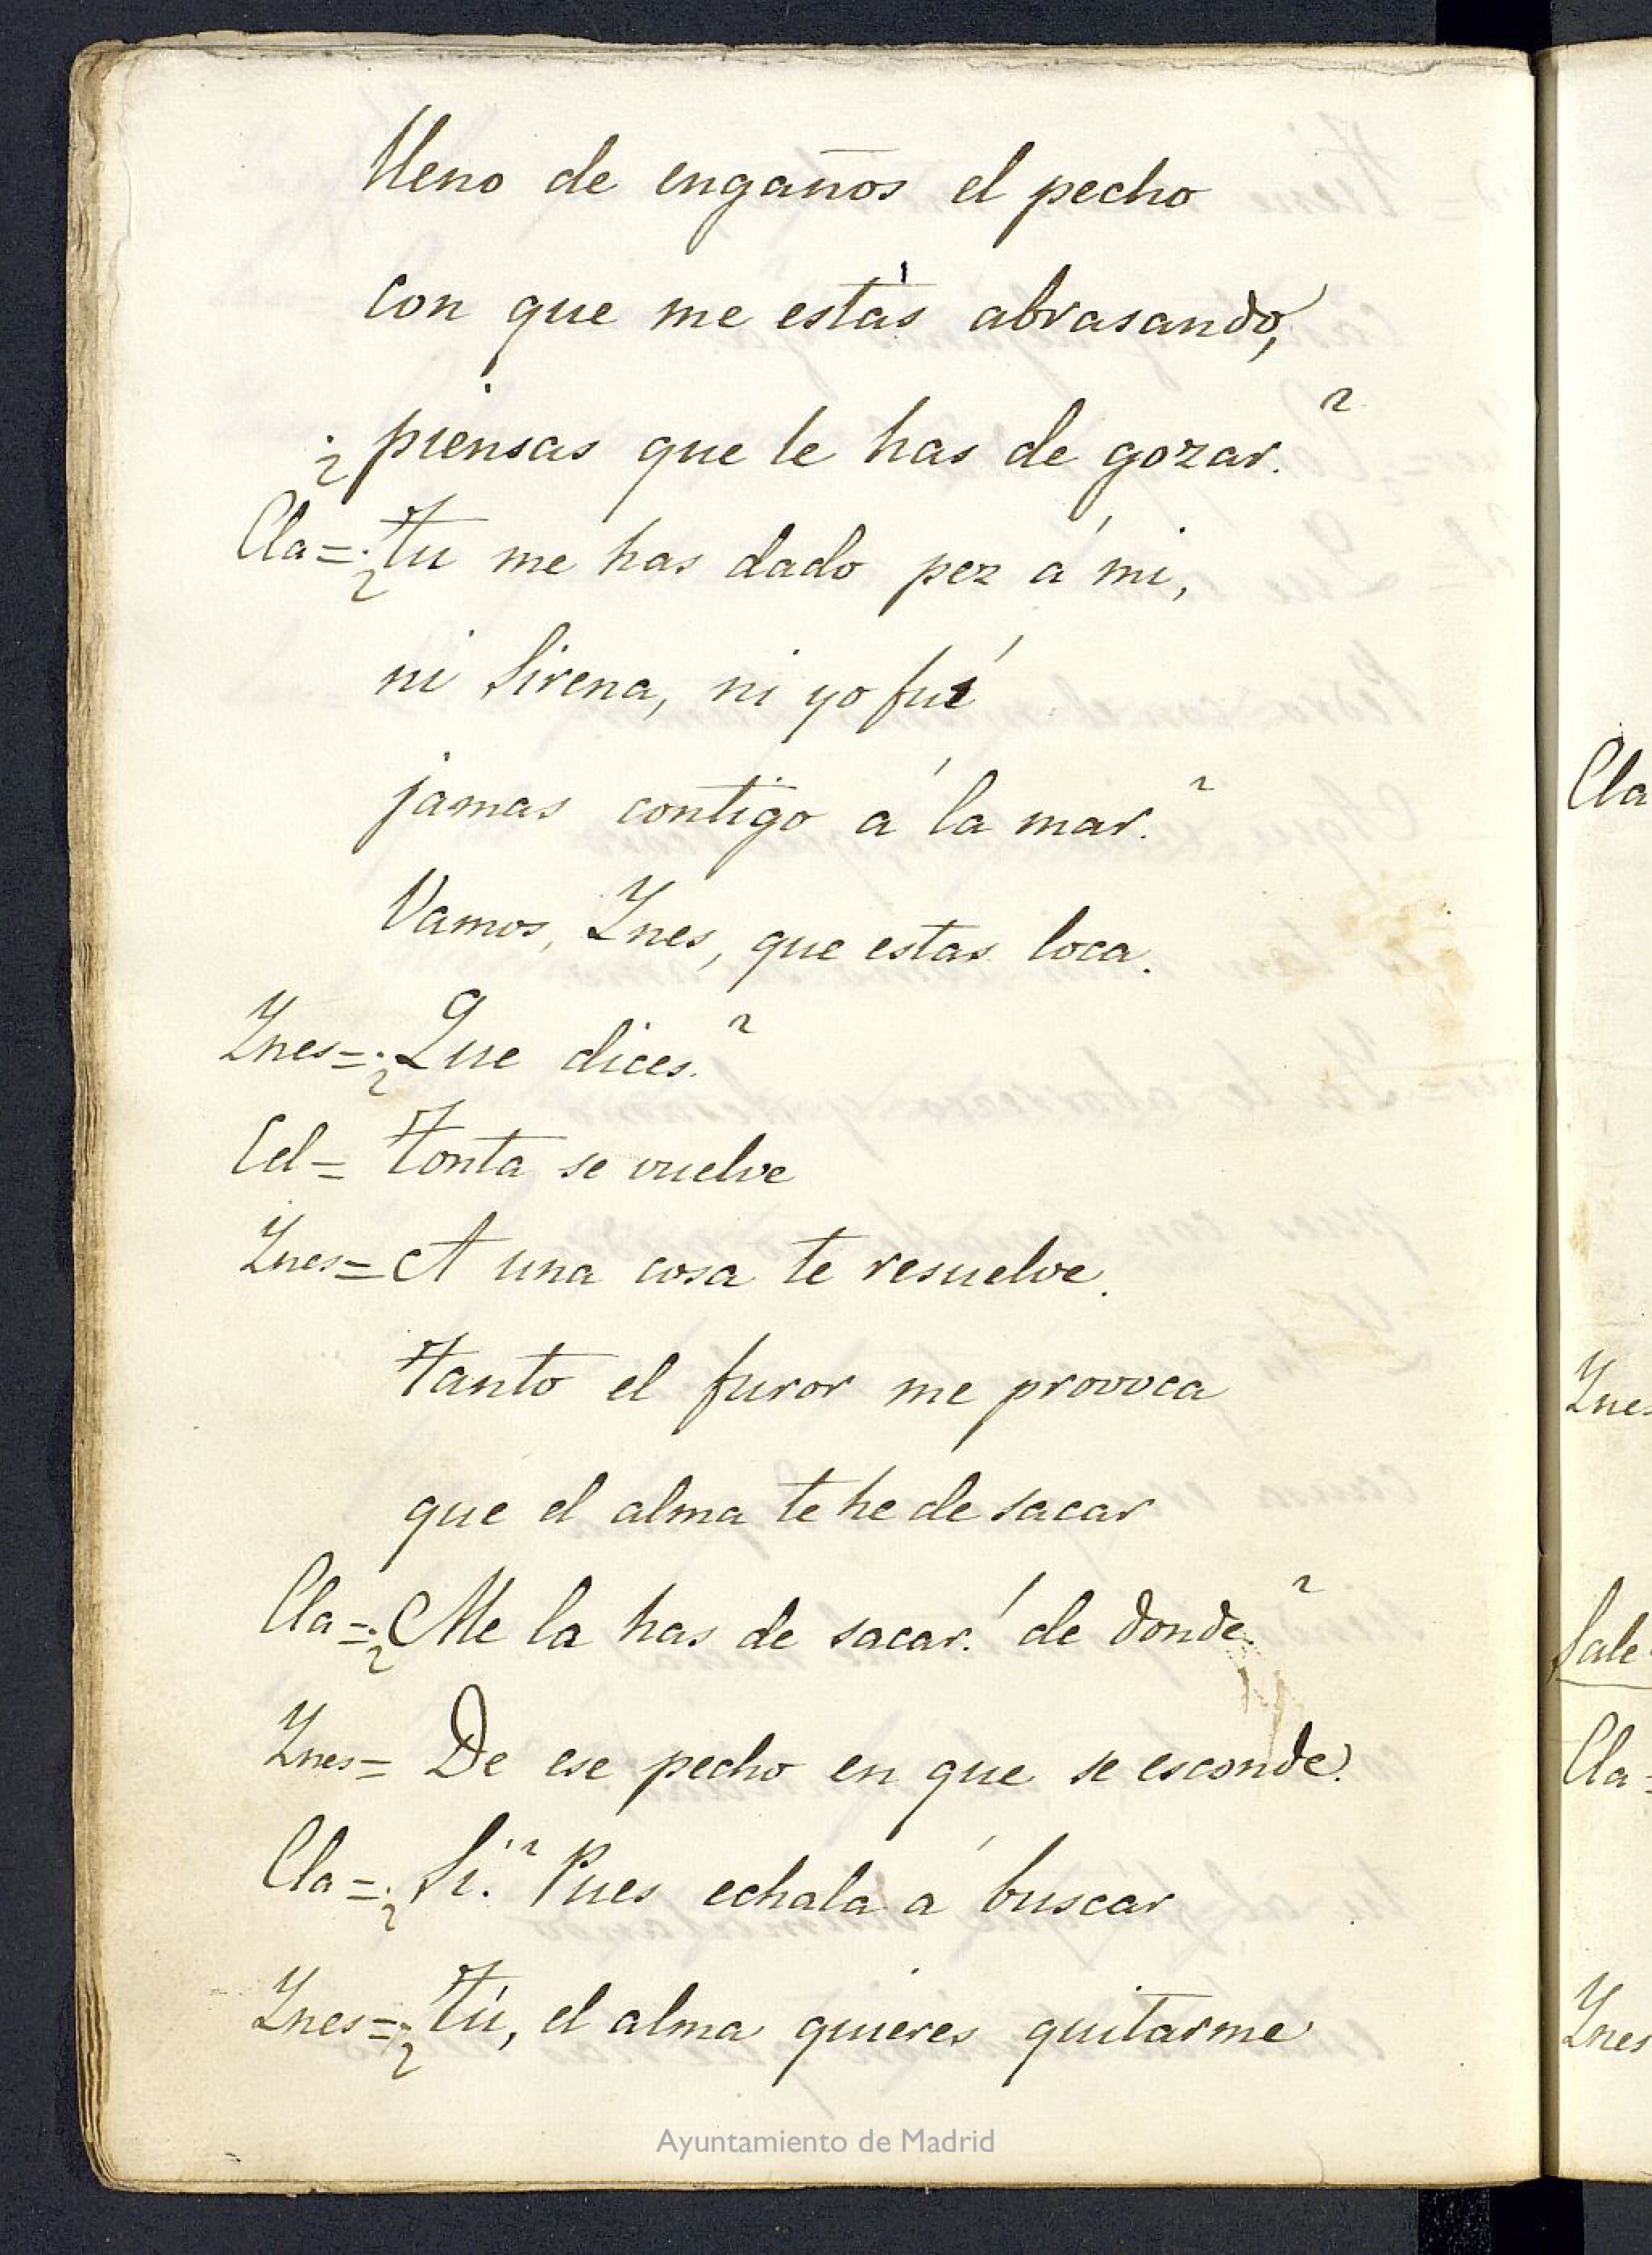 lleno de engaños el pecho
con que me estás abrasando,
¿piensas que le has de gozar?
Cla=¿Tu me has dado pez á mi,
ni Sirena, ni yo fué
jamas contigo á la mar?
Vamos, Ynes, que estas loca.
Ynes=¿Que dices?
Cel= Tonta se vuelve
Ynes= A una cosa te resuelve.
Tanto el furor me provoca
que el alma te he de sacar
Cla=¿Me la has de sacar! de donde?
Ynes= De ese pecho en que se esconde.
Cla=¿Si? Pues echala á buscar
Ynes=¿Tú, el alma quieres quitarme
Ayuntamiento de Madrid
Cla
Ynes
Sale
Cla=
Ynes